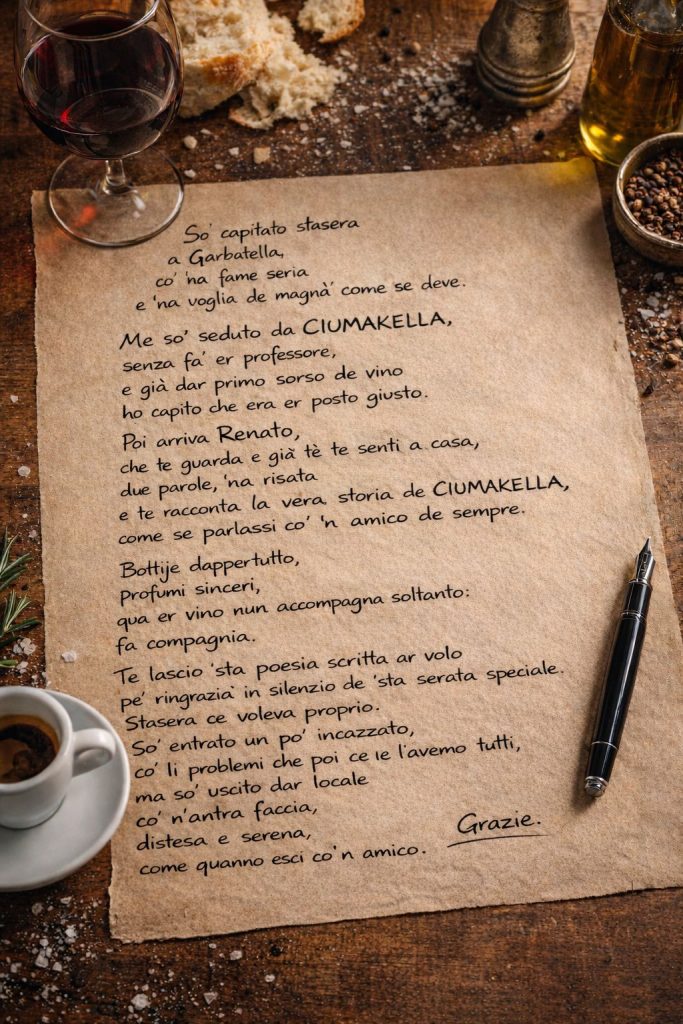 So' capitato stasera
a Garbatella,
co' 'na fame seria
e 'na voglia de magnà' come se deve.
Me so' seduto da CIUMAKELLA,
senza fa' er professore,
e già dar primo sorso de vino
ho capito che era er posto giusto.
Poi arriva Renato,
che te guarda e già tè te senti a casa,
due parole, 'na risata
e te racconta la vera storia de CIUMAKELLA,
come se parlassi co' 'n amico de sempre.
Bottije dappertutto,
profumi sinceri,
qua er vino nun accompagna soltanto:
fa compagnia.
Te lascio 'sta poesia scritta ar volo
pe' ringrazià in silenzio de 'sta serata speciale.
Stasera ce voleva proprio.
So' entrato un po' incazzato,
co' li problemi che poi ce le l'avemo tutti,
ma so' uscito dar locale
co' n'antra faccia,
distesa e serena,
come quanno esci co'n amico.
Grazie.